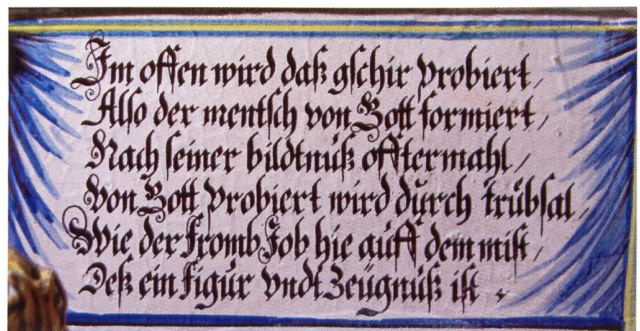 Im offen wird daß gschir probiert /
Also der mentsch von Gott formiert /
Nach seiner bildtnuß offtermahl /
Von Gott probiert wird durch trübsal /
Wie der fromb Job hie auff dem mist /
Deß ein figur vndt Zeügnuß ist